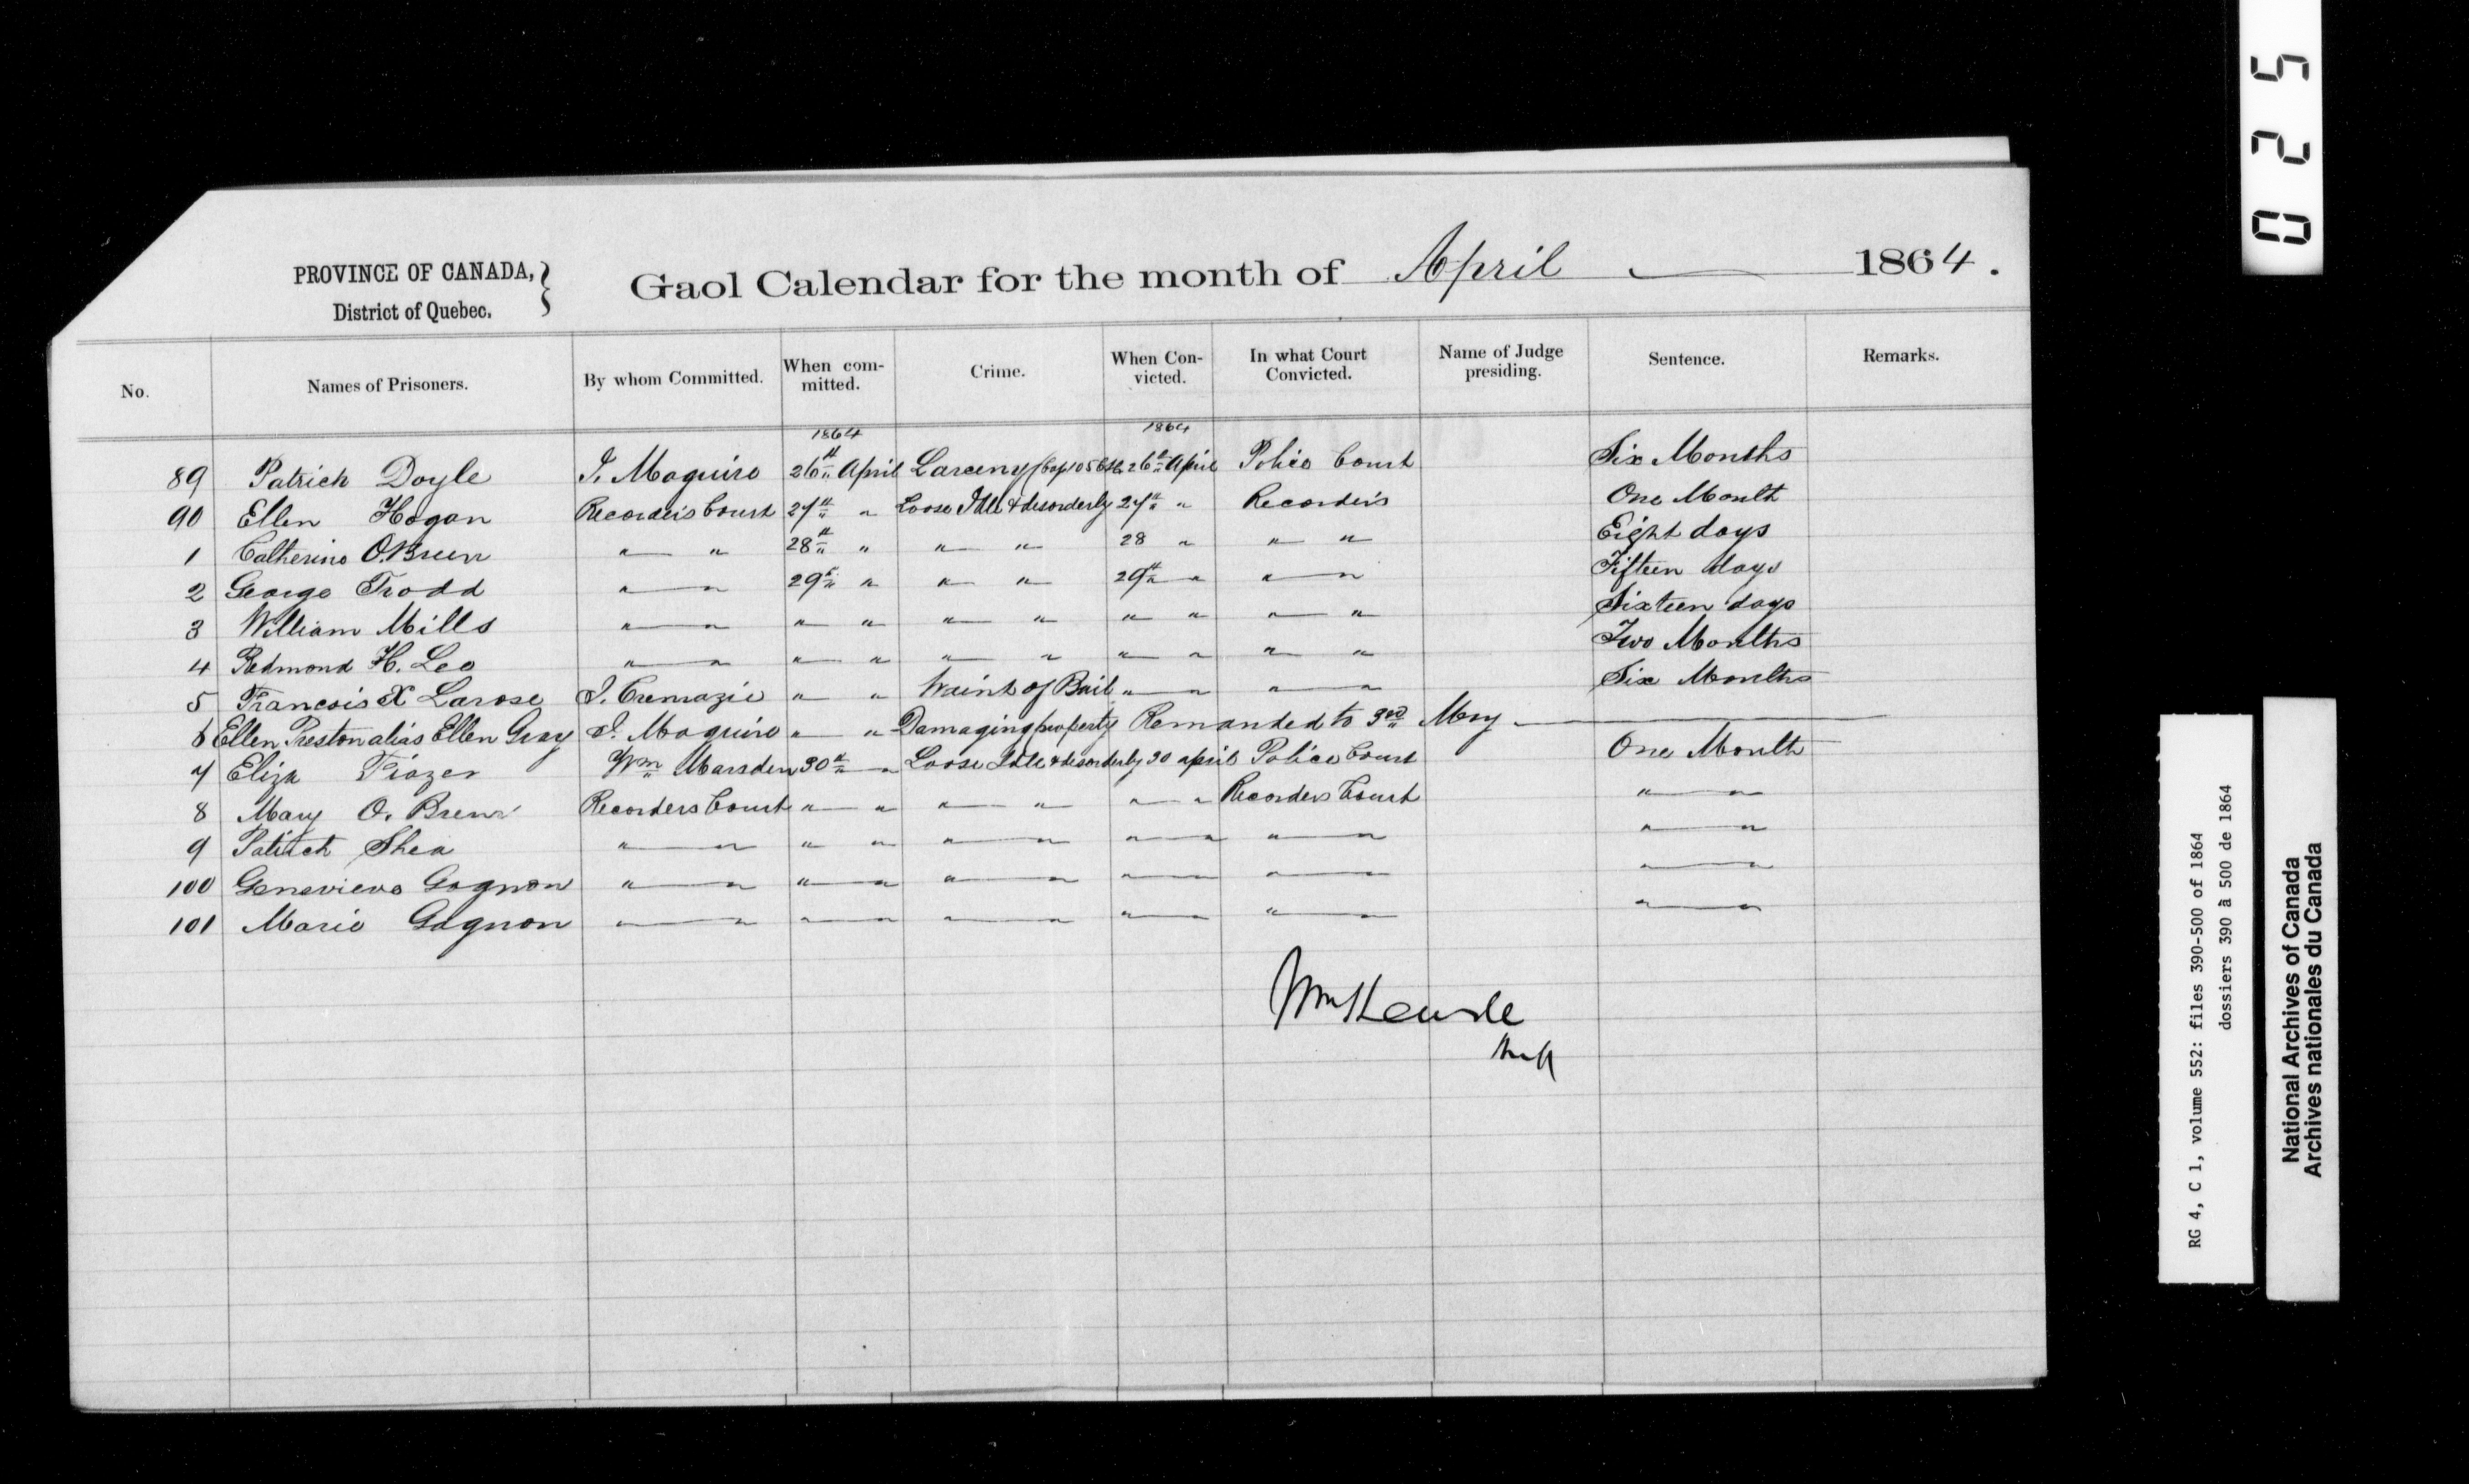 PROVINCE OF CANADA,
District of Quebec.
Gaol Calendar for the month of April 1864.
No. Names of Prisoners. By whom Committed. When committed. Crime. When Convicted. In what Court Convicted. Name of Judge presiding. Sentence. Remarks.
1864 1864
89 Patrick Doyle J. Maguire 26th April Larceny (Cap 105 26th April Police Court Six Months
90 Ellen Hogan Recorder's Court 27th " Loose Idle & disorderly 27th " Recorder's One Month
1 Catherine O'Brien " " 28th " " " 28 " " " Eight days
2 George Trodd " " 29th " " " 29th " " " Fifteen days
3 William Mills " " " " " " " " " " Sixteen days
4 Redmond H. Leo " " " " " " " " " " Two Months
5 Francois X Larose J. Cremazie " " Waint of Bail " " " " Six Months
6 Ellen Preston alias Ellen Gray J. Maguire " " Damaging property Remanded to 3rd May
7 Eliza Fiazer Wm Marsden 30th " Loose Idle & disorderly 30 april Police Court One Month
8 Mary O. Brens Recorders Court " " " " " " Recorders Court " "
9 Patrick Shea " " " " " " " " " " " "
100 Genevieve Gagnon " " " " " " " " " " " "
101 Marie Gagnon " " " " " " " " " " " "
025
RG 4, C 1, volume 552: files 390-500 of 1864
dossiers 390 à 500 de 1864
National Archives of Canada
Archives nationales du Canada